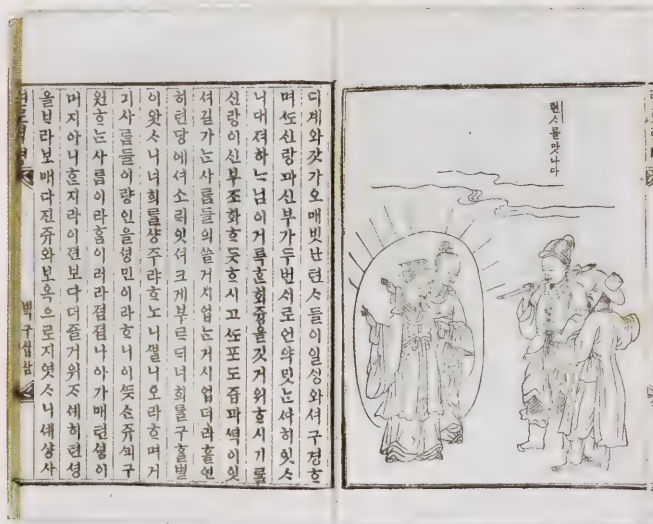 텬ᄉᆞ를맛나다
디계와갓가오매빗난텬ᄉᆞ들이일샹와셔구경ᄒᆞ
며ᄯᅩ신랑과신부가두번서로언약ᄆᆡᆺᄂᆞᆫᄯᅡ히잇ᄉᆞ
니대져하ᄂᆞ님이거륵ᄒᆞᆫ회즁을깃거위ᄒᆞ시기ᄅᆞᆯ
신랑이신부조화ᄒᆞᄃᆞᆺᄒᆞ시고ᄯᅩ포도즙과ᄯᅥᆨ이잇
셔길가ᄂᆞᆫ사ᄅᆞᆷ들의쓸거시업ᄂᆞᆫ거시업더라홀연
히텬당에셔소ᄅᆡ잇셔크게부ᄅᆞᄃᆡ너희ᄅᆞᆯ구홀별
이왓ᄉᆞ니너희ᄅᆞᆯ샹주랴ᄒᆞ노니ᄲᆞᆯ니오라ᄒᆞ며거
기사ᄅᆞᆷ들이량인을셩민이라ᄒᆞ니이ᄯᅳᆺ슨쥬ᄭᅴ구
원ᄒᆞᄂᆞᆫ사ᄅᆞᆷ이라홈이러라졈졈나아가매텬셩이
머지아니ᄒᆞᆫ지라이젼보다더즐거위ᄌᆞ셰히텬셩
을ᄇᆞ라보매다진쥬와보옥으로지엿ᄉᆞ니셰샹사
ᄇᆡᆨ구십삼